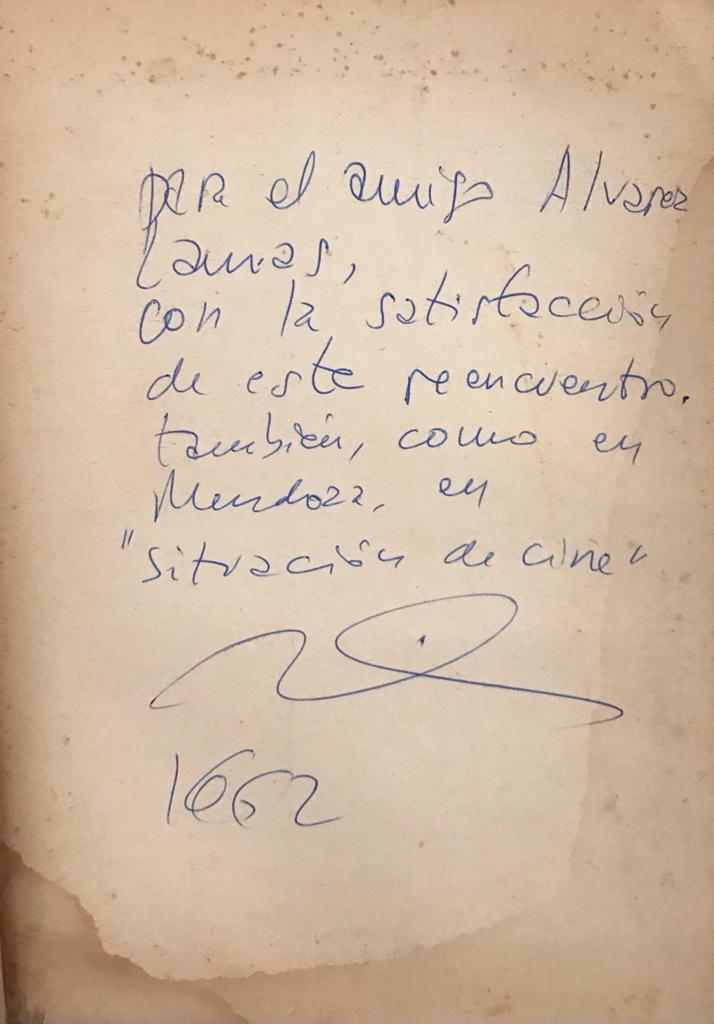 para el amigo Alvarez
Lamas,
con la satisfacción
de este reencuentro.
también, como en
Mendoza, en
"situación de cine"
1962